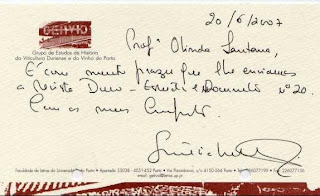 20/6/2007
GEHVID
Grupo de Estudos de História
da Viticultura Duriense e do Vinho do Porto
Profª Olinda Santana,
É com muito prazer que lhe enviamos
a revista Douro - Estudos e Documentos nº 20.
Com os meus cumptos.
Faculdade de Letras da Universidade do Porto • Apartado 55038 • 4051-452 Porto • Via Panorâmica, s/n 4150-564 Porto